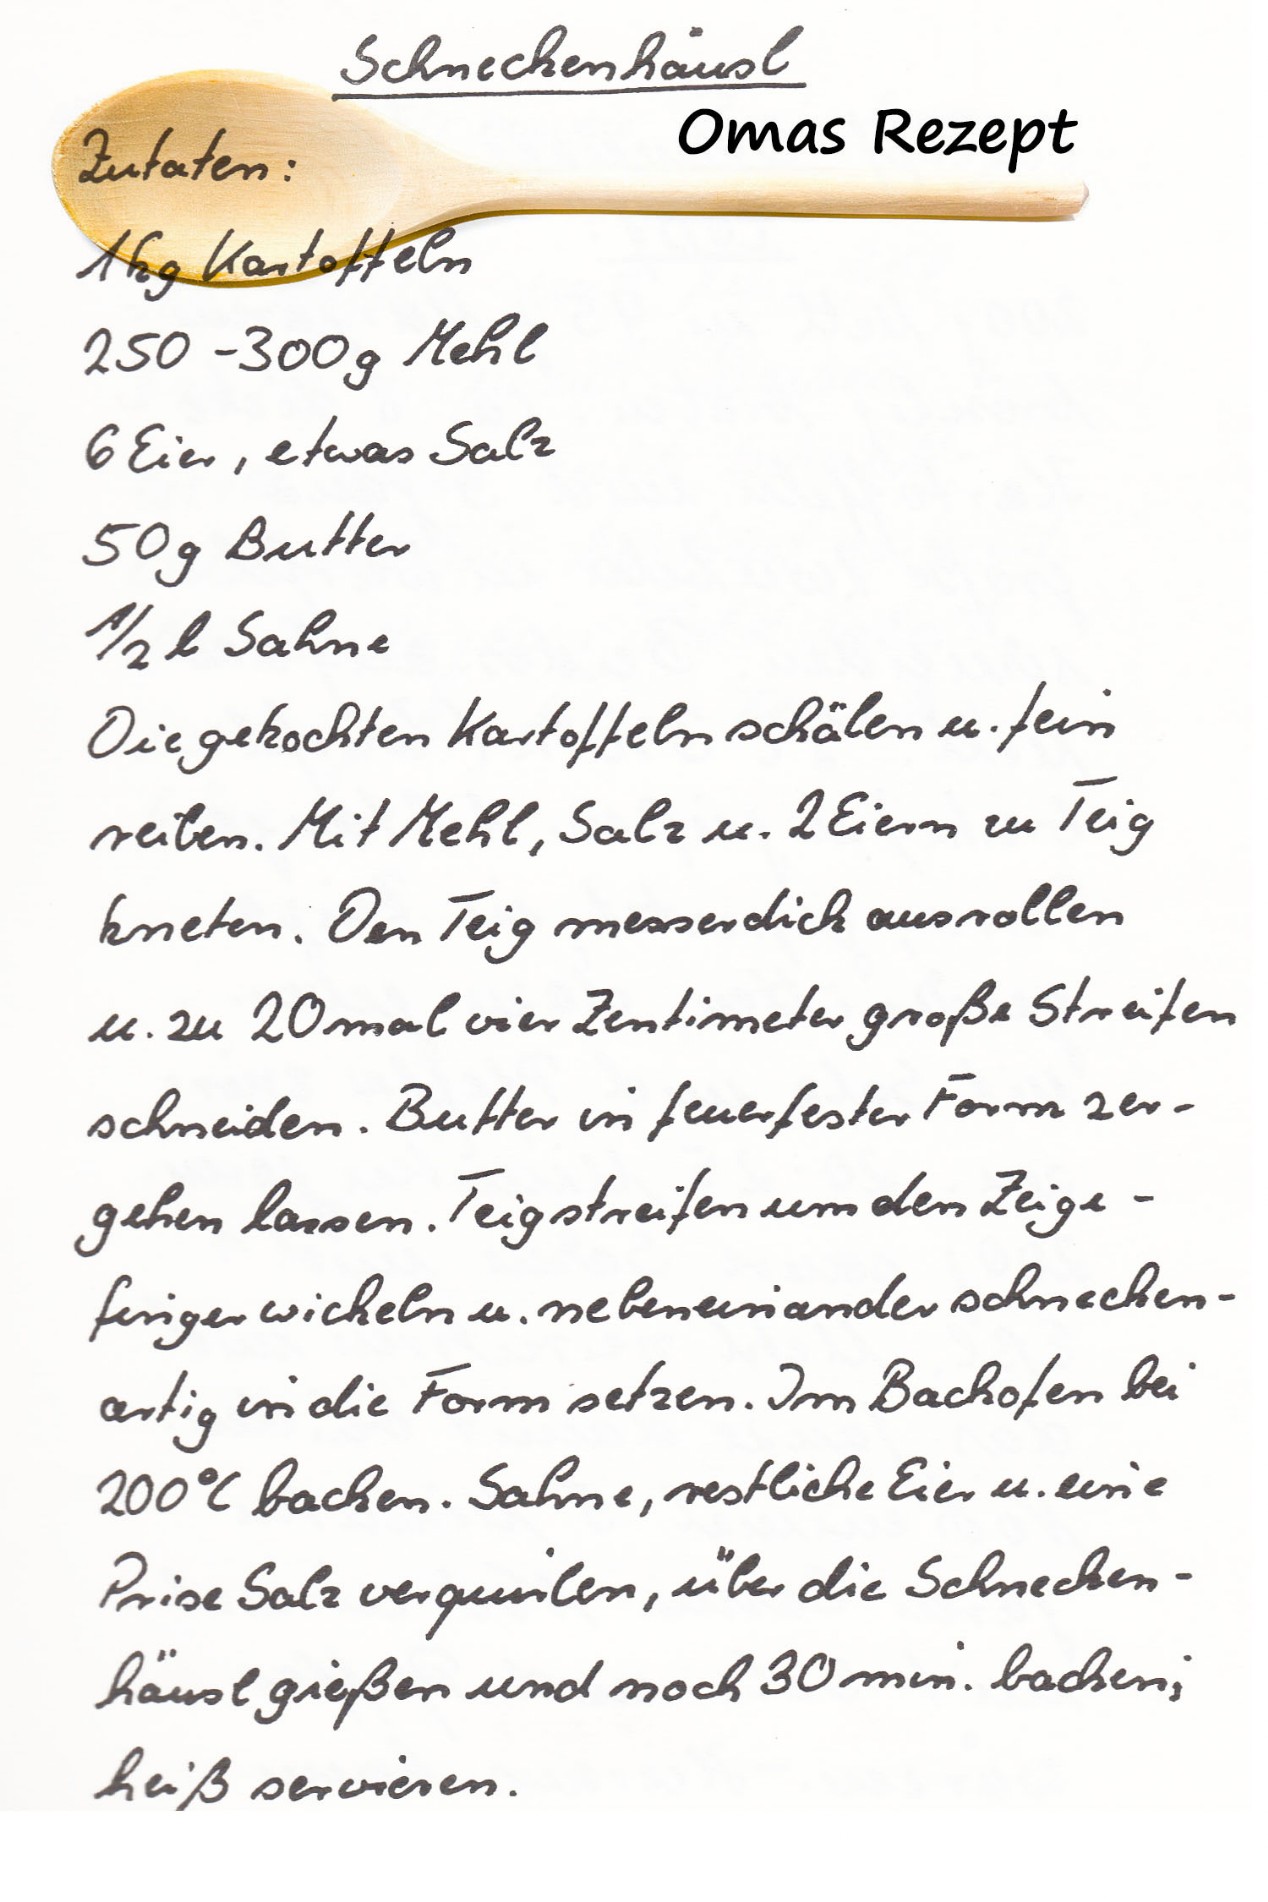 Schneckenhäusl
Omas Rezept
Zutaten:
1kg Kartoffeln
250 - 300g Mehl
6 Eier, etwas Salz
50g Butter
1/2 l Sahne
Die gekochten Kartoffeln schälen u. fein
reiben. Mit Mehl, Salz u. 2 Eiern zu Teig
kneten. Den Teig messerdick ausrollen
u. zu 20 mal vier Zentimeter große Streifen
schneiden. Butter in feuerfester Form zer-
gehen lassen. Teigstreifen um den Zeige-
finger wickeln u. nebeneinander schnecken-
artig in die Form setzen. Im Backofen bei
200°C backen. Sahne, restliche Eier u. eine
Prise Salz verquirlen, über die Schnecken-
häusl gießen und noch 30 min. backen;
heiß servieren.